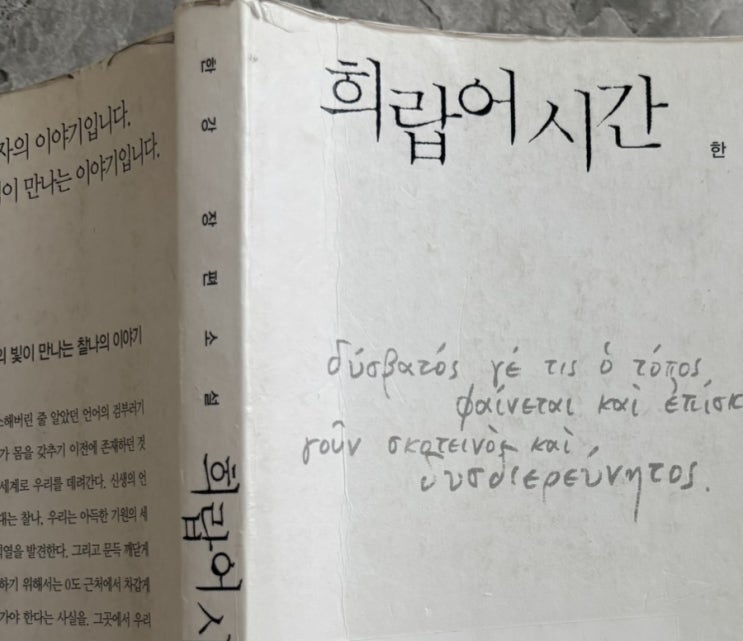 자의 이야기입니다.
이 만나는 이야기입니다.
의 빛이 만나는 찰나의 이야기
소해버린 줄 알았던 언어의 검부러기
가 몸을 갖추기 이전에 존재하던 것
세계로 우리를 데려간다. 신생의 언
대는 찰나, 우리는 아득한 기원의 세
열을 발견한다. 그리고 문득 깨닫게
하기 위해서는 0도 근처에서 차갑게
가야 한다는 사실을. 그곳에서 우리
한강 장편소설
희랍어
희랍어 시간
한
δύσβατός γέ τις ὁ τόπος
φαίνεται καὶ ἐπίσκ
γοῦν σκοτεινὸς καὶ
δυσδιερεύνητος.